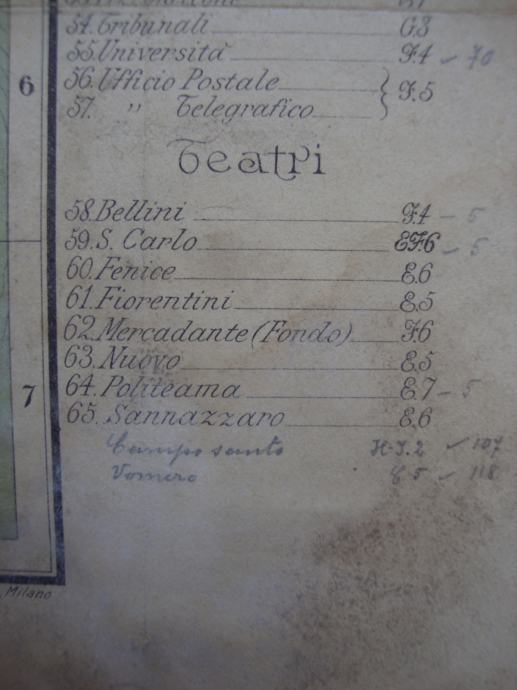 54. Tribunali G3
55. Università F.4 - 70
56. Ufficio Postale } F.5
57. " Telegrafico
6
Teatri
58. Bellini F.4 - 5
59. S. Carlo EF6 - 5
60. Fenice E.6
61. Fiorentini E.5
62. Mercadante (Fondo) F.6
63. Nuovo E.5
64. Politeama E.7 - 5
7
65. Sannazzaro E.6
Camposanto H-I.2 - 107
Vomero C 5 - 118
Milano